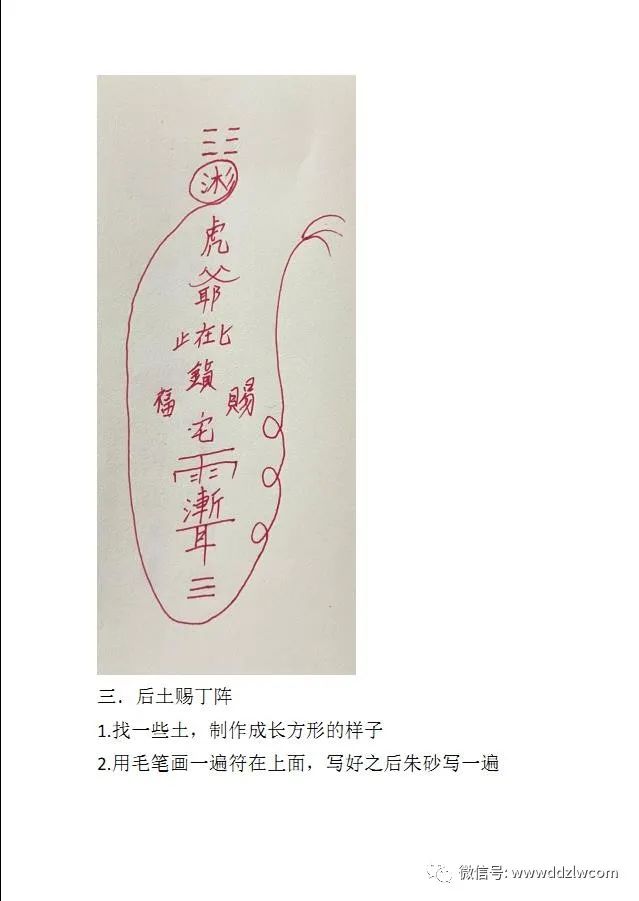 虎
爺
止在匕
鎖
福 賜
宅
雨
漸
耳
三
三．后土赐丁阵
1.找一些土，制作成长方形的样子
2.用毛笔画一遍符在上面，写好之后朱砂写一遍
微信号: wwwddzlwcom